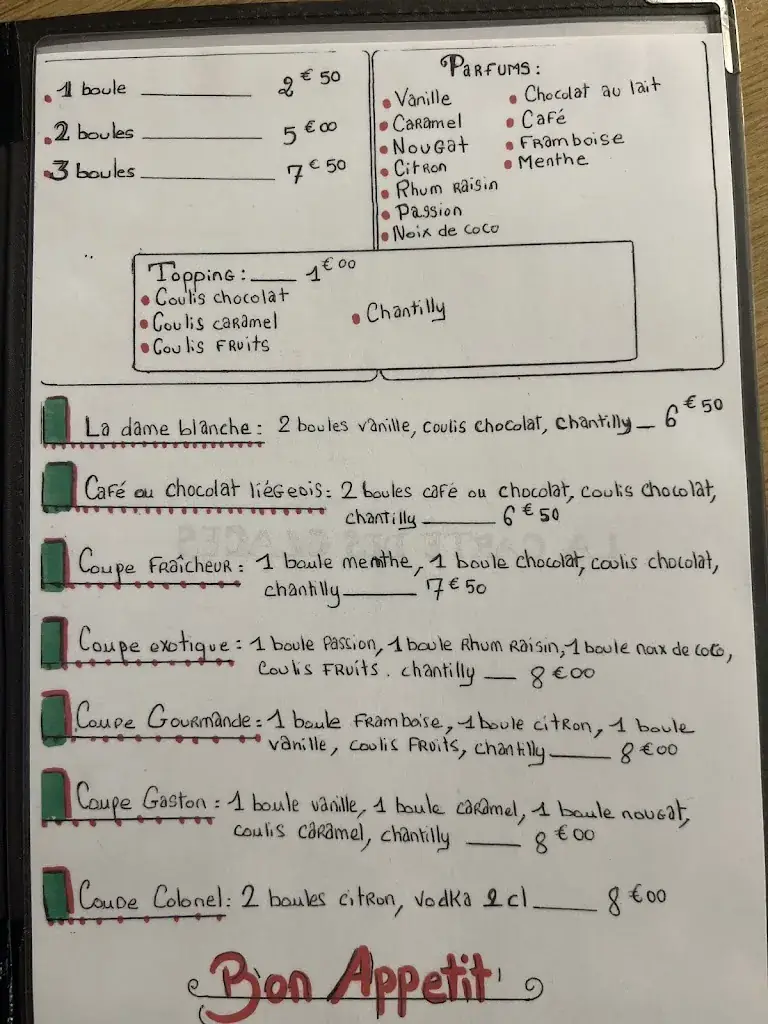 1 boule 2€50
2 boules 5€00
3 boules 7€50
Parfums:
Vanille
Caramel
Nougat
Citron
Rhum Raisin
Passion
Noix de coco
Chocolat au lait
Café
Framboise
Menthe
Topping: 1€00
Coulis chocolat
Coulis caramel
Coulis Fruits
Chantilly
La dame blanche: 2 boules vanille, coulis chocolat, chantilly 6€50
Café ou chocolat liégeois: 2 boules café ou chocolat, coulis chocolat,
chantilly 6€50
Coupe Fraîcheur: 1 boule menthe, 1 boule chocolat, coulis chocolat,
chantilly 7€50
Coupe exotique: 1 boule Passion, 1 boule Rhum Raisin, 1 boule noix de coco,
Coulis Fruits. chantilly 8€00
Coupe Gourmande: 1 boule Framboise, 1 boule citron, 1 boule
vanille, coulis Fruits, chantilly 8€00
Coupe Gaston: 1 boule vanille, 1 boule caramel, 1 boule nougat,
coulis caramel, chantilly 8€00
Coupe Colonel: 2 boules citron, vodka 2cl 8€00
Bon Appetit